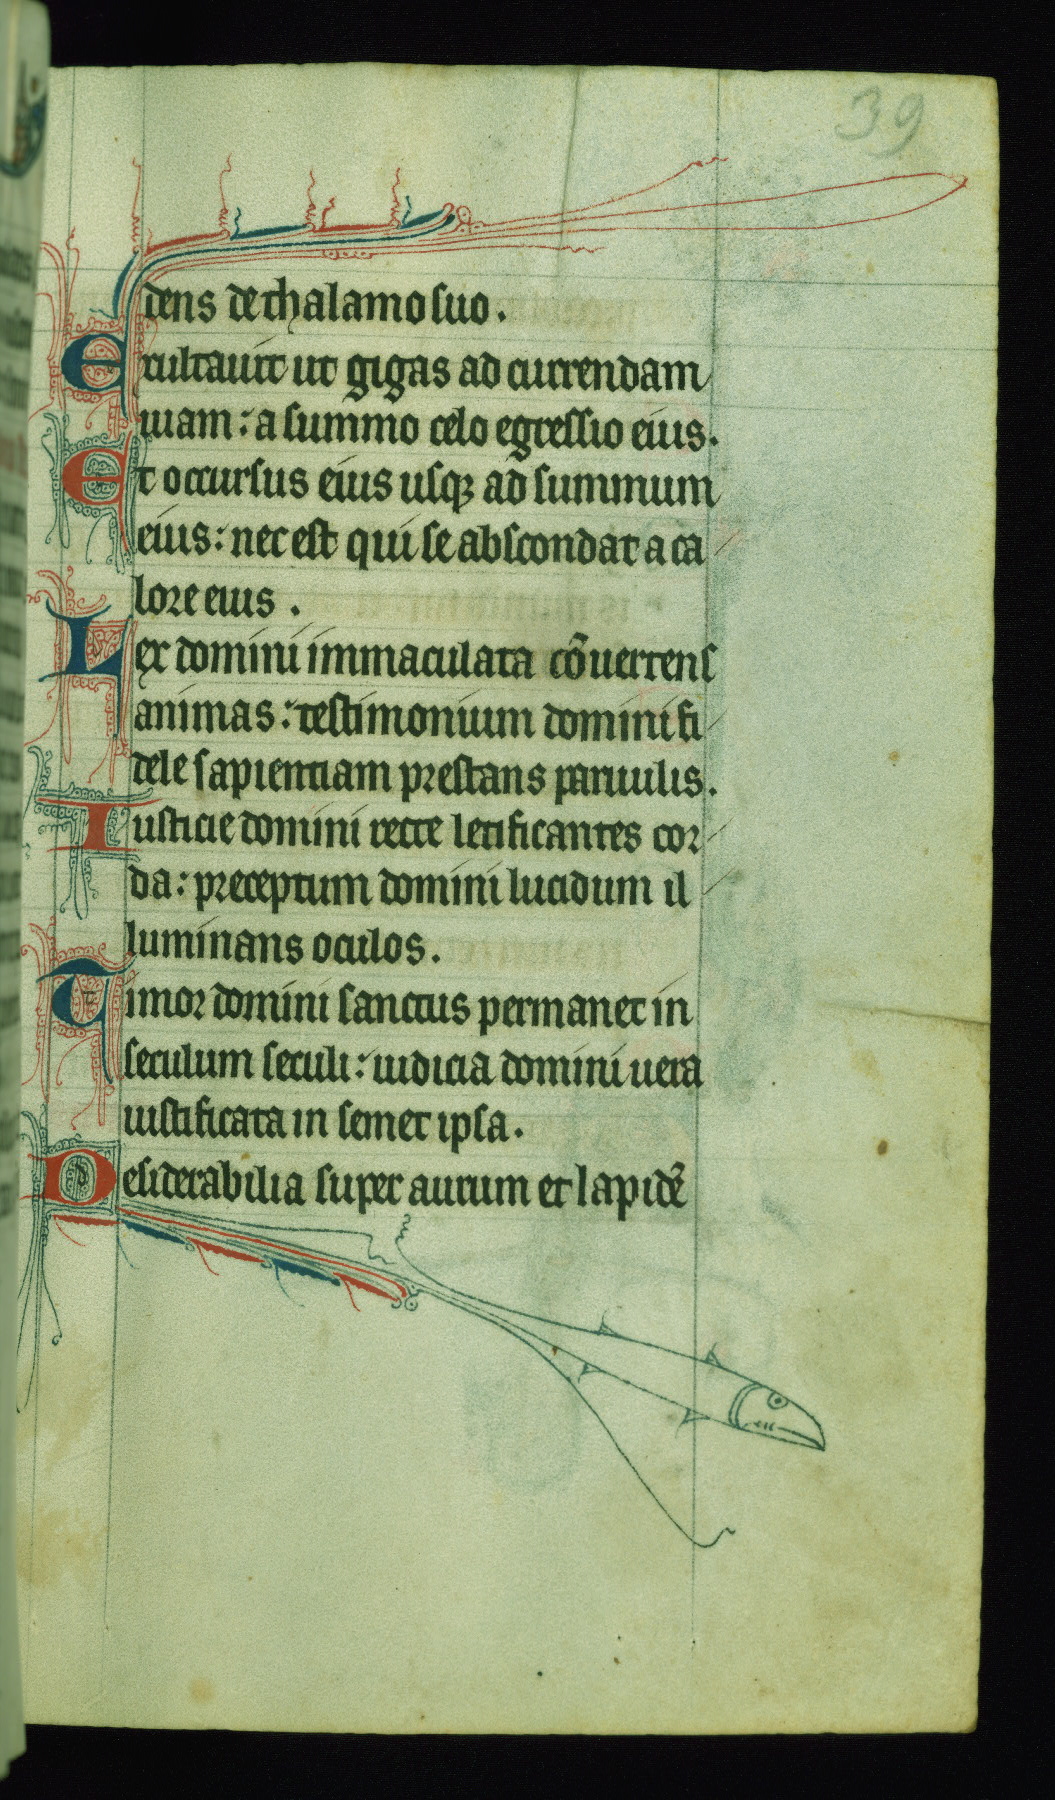 39
dens de thalamo suo.
Exultauit ut gigas ad currendam
uiam: a summo celo egressio eius.
Et occursus eius usq; ad summum
eius: nec est qui se abscondat a ca
lore eius.
Lex domini immaculata cōuertens
animas: testimonium domini fi
dele sapientiam prestans paruulis.
Iusticie domini recte letificantes cor
da: preceptum domini lucidum il
luminans oculos.
Timor domini sanctus permanet in
seculum seculi: iudicia domini uera
iustificata in semet ipsa.
Desiderabilia super aurum et lapidē